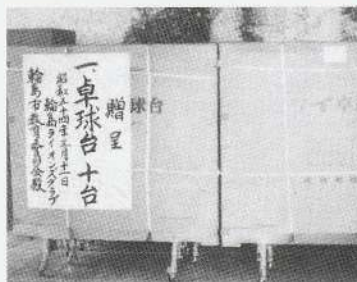 贈呈
一、卓球台十台
昭和五十四年三月十一日
輪島ライオンズクラブ
輪島市教育委員会殿
球台